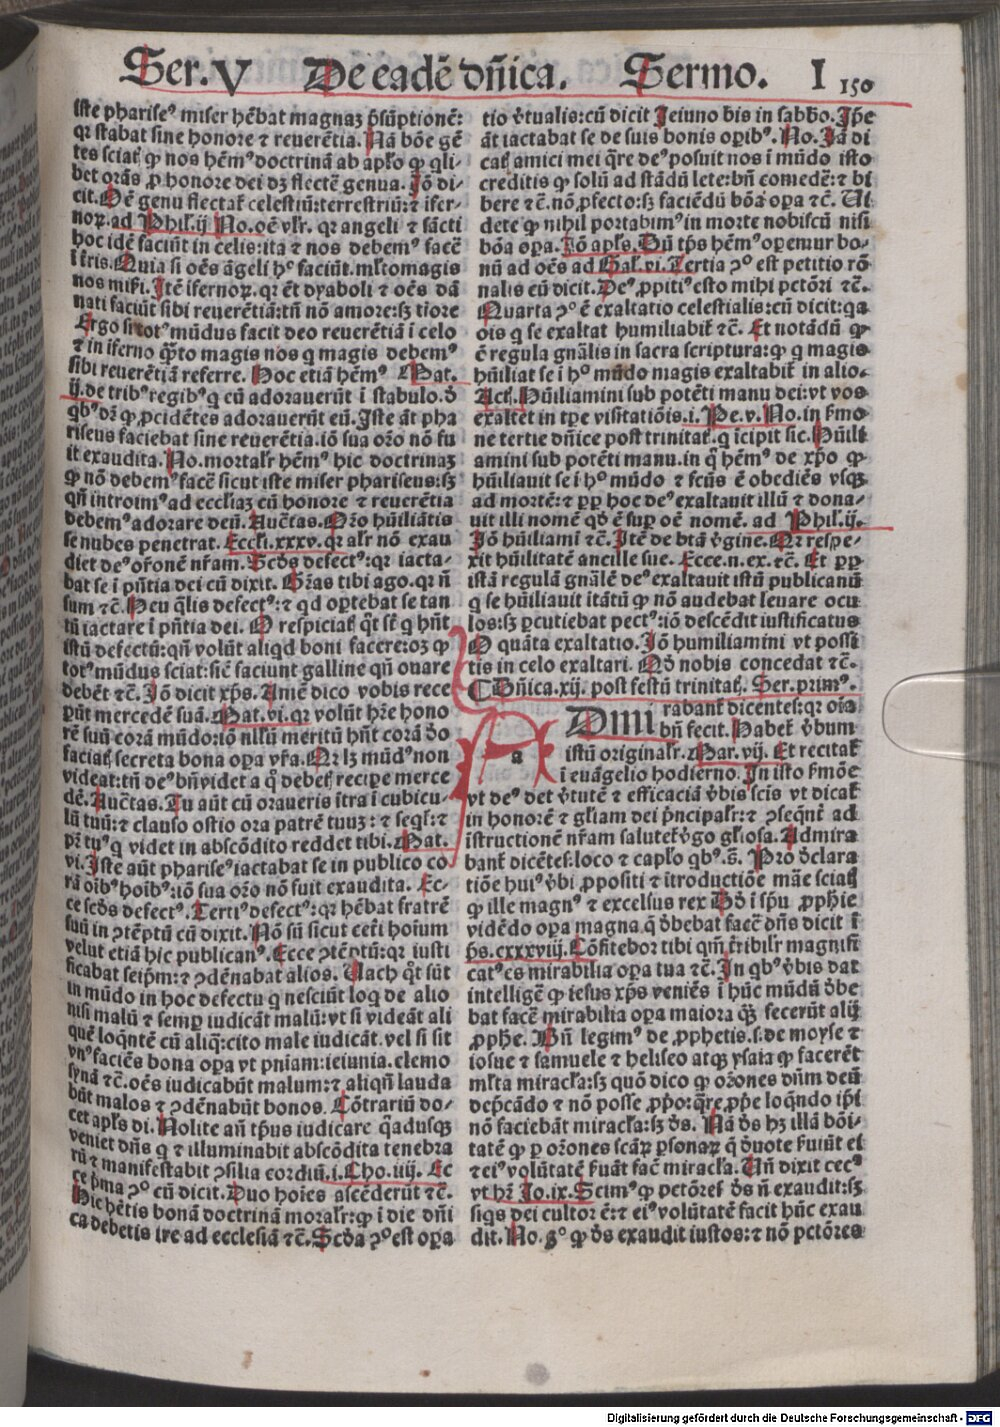 Ser. V De eadē dñica. Sermo. I 150
iste phariseꝰ miser hēbat magnaꝫ p̄sūptionē:
qꝛ stabat sine honore ⁊ reuerētia. Nā bōe gē
tes sciāt ꝙ nos hēmꝰ doctrinā ab aplo ꝙ qli
bet orās ꝓ honore dei dꝫ flectē genua. Jō di-
cit. Oē genu flectat celestiū: terrestriū: ⁊ ifer-
noꝝ. ad Phil. ij No. oē vlr. qꝛ angeli ⁊ sācti
hoc idē faciūt in celis: ita ⁊ nos debemꝰ facē
i tr̄is. Quia si oēs āgeli hᵒ faciūt. mltomagis
nos miſi. Itē ifernoꝝ. qꝛ ēt dyaboli ⁊ oēs dā
nati faciūt sibi reuerētiā: tn̄ nō amore: sꝫ tiore
Ergo si totꝰ mūdus facit deo reuerētiā i celo
⁊ in iferno q̄to magis nos q magis debemꝰ
sibi reuerētiā referre. Hoc etiā hēmꝰ Mat.
ij. de tribꝰ regibꝰ q cū adorauerūt i stabulo. ð
qbꝰ dꝛ̄ ꝙ ꝓcidētes adorauerūt eū. Iste āt pha
riseus faciebat sine reuerētia. iō sua or̄o nō fu
it exaudita. No. mortalr hēmꝰ hic doctrinaꝫ
ꝙ nō debemꝰ facē sicut iste miser phariseus: sꝫ
qn̄ introimꝰ ad ecclīaꝫ cū honore ⁊ reuerētia
debemꝰ adorare deū. Auctas. Or̄o hūiliātis
se nubes penetrat. Eccli. xxxv. qꝛ alr nō exau
diet deꝰ or̄onē nr̄am. Scd̄s defectꝰ: qꝛ iacta-
bat se i pn̄tia dei cū dixit. Gr̄as tibi ago. qꝛ n̄
sum ⁊c̄. Heu q̄lis defectꝰ: ⁊ qd oꝑtebat se tan
tū iactare i pn̄tia dei. O respiciat q̄t st̄ q hn̄t
istū defectū: qn̄ volūt aliqd boni facere: oꝫ ꝙ
totꝰ mūdus sciat: sic̄ faciunt galline qn̄ ouare
debēt ⁊c̄. Jō dicit xp̄s. Amē dico vobis rece
perūt mercedē suā. Mat. vi. qꝛ volūt hr̄e hono
rē suū corā mūdo: iō nłłū meritū hn̄t corā ðo
faciat secreta bona oꝑa vr̄a. Qꝛ lꝫ mūdꝰ non
videat: tn̄ deꝰ bn̄ videt a q̄ debet reciꝑe merce
dē. Auctas. Tu aūt cū oraueris itra i cubicu-
lū tuū: ⁊ clauso ostio ora patrē tuuꝫ: ⁊ seqł: ⁊
pr̄ tuꝰ q videt in abscōdito reddet tibi. Mat.
vi. Iste aūt phariseꝰ iactabat se in publico co
rā oibꝰ hoibꝰ: iō sua or̄o nō fuit exaudita. Ec-
ce scd̄s defectꝰ. Tertiꝰ defectꝰ: qꝛ hēbat fratrē
suū in ꝯtēptū cū dixit. Nō sū sicut ceti hoium
velut etiā hic publicanꝰ. Ecce ꝯtēptū: qꝛ iusti
ficabat seipm̄: ⁊ ꝯdēnabat alios. Uach q̄t sūt
in mūdo in hoc defectu q nesciūt loq de alio
nisi malū ⁊ semꝑ iudicāt malū: vt si videāt ali
quē loqntē cū aliq̄: cito male iudicāt. vel si sit
vnꝰ faciēs bona oꝑa vt pniam: ieiunia. elemo
synā ⁊c̄. oēs iudicabūt malum: ⁊ aliqn̄ lauda
būt malos ⁊ ꝯdēnabūt bonos. Cōtrariū do-
cet apls di. Nolite an̄ tp̄us iudicare q̄adusqꝫ
veniet dn̄s q ⁊ illuminabit abscōdita tenebra
rū ⁊ manifestabit ꝯsilia cordiū. i. Cho. iiij. Ec
ce p̄ma ꝯᵒ cū dicit. Duo hoies ascēderūt ⁊c̄.
Hic hētis bonā doctrinā moralr: ꝙ i die dn̄i
ca debetis ire ad ecclesiā ⁊c̄. Scd̄a ꝯᵒ est oꝑa
tio v̄tualis: cū dicit Jeiuno bis in sabb̄o. Ip̄e
āt iactabat se de suis bonis oꝑibꝰ. No. Jā di
cat amici mei qre deꝰ posuit nos i mūdo isto
creditis ꝙ solū ad stādū lete: bn̄ comedē: ⁊ bi
bere ⁊c̄. nō ꝓfecto: sꝫ faciēdū bōa oꝑa ⁊c̄. Ui
dete ꝙ nihil portabimꝰ in morte nobiscū nisi
bōa oꝑa. Jō apls. Dū tp̄s hēmꝰ oꝑemur bo-
nū ad oēs ad Gal. vi. Tertia ꝯᵒ est petitio rō
nalis cū dicit. Deꝰ ꝓpitiꝰ esto mihi pctōri ⁊c̄.
Quarta ꝯᵒ ē exaltatio celestialis: cū dicit: qꝛ
ois q se exaltat humiliabit ⁊c̄. Et notādū ꝙ
ē regula gn̄alis in sacra scriptura: ꝙ q magis
hūiliat se i hᵒ mūdo magis exaltabit in alio.
Act. Hūiliamini sub potēti manu dei: vt vos
exaltet in tꝑe visitatiōis. i. Pe. v. No. in ẜmo
ne tertie dn̄ice post trinitat. q icipit sic. Hūili
amini sub potēti manu. in q̄ hēmꝰ de xp̄o ꝙ
hūiliauit se i hᵒ mūdo ⁊ fcūs ē obediēs vsqꝫ
ad mortē: ⁊ ꝓꝑ hoc deꝰ exaltauit illū ⁊ dona-
uit illi nomē qd̄ ē suꝑ oē nomē. ad Phil. ij.
Jō hūiliami ⁊c̄. Itē de btā v̄gine. Qꝛ respe-
xit hūilitatē ancille sue. Ecce. n. ex. ⁊c̄. Et ꝓꝑ
istā regulā gnālē deꝰ exaltauit istū publicanū
q se hūiliauit itātū ꝙ nō audebat leuare ocu
los: sꝫ ꝑcutiebat pectꝰ: iō descēdit iustificatus
O quāta exaltatio. Jō humiliamini vt possi
tis in celo exaltari. Qd̄ nobis concedat ⁊c̄.
¶ Dn̄ica. xij. post festū trinitat. Ser. primꝰ.
A Dmi rabant dicentes: qꝛ oīa
bn̄ fecit. Habet v̄bum
istū originalr. Mar. vij. Et recitat
i euāgelio hodierno. In isto ẜmōe
vt deꝰ det v̄tutē ⁊ efficaciā v̄bis scis vt dicat
in honorē ⁊ gliam dei p̄ncipalr: ⁊ ꝯseqnt̄ ad
istructionē nr̄am salutet v̄go gliosa. Admira
bant dicētes: loco ⁊ caplo qbꝰ. s̄. Pro d̄clara
tiōe huiꝰ v̄bi ꝓpositi ⁊ itroductiōe māe sciat
ꝙ ille magnꝰ ⁊ excelsus rex Dd̄ i sp̄u ꝓphīe
vidēdo oꝑa magna q̄ d̄bebat facē dn̄s dicit i
ps̄. cxxxviij. Cōfitebor tibi qm̄ t̄ribilr magnifi
catꝰ es mirabilia oꝑa tua ⁊c̄. In qbꝰ v̄bis dat
intelligē ꝙ iesus xp̄s veniēs i hūc mūdū d̄be
bat facē mirabilia oꝑa maiora q̄ꝫ fecerūt alij
ꝓphe. Bn̄ legimꝰ de ꝓphetis. s. de moyse ⁊
iosue ⁊ samuele ⁊ heliseo atqꝫ ysaia ꝙ facerēt
mlta miracla: sꝫ quō dico ꝙ or̄ones dūm deū
dep̄cādo ⁊ nō posse ꝓpo: q̄re ꝓphe loqndo ipi
nō faciebāt miracla: sꝫ ds̄. Nā ds̄ hꝫ illā bōi-
tatē ꝙ ꝑ or̄ones scāꝝ ꝑsonaꝝ q̄ d̄uote fuiūt ei
⁊ eiꝰ volūtatē fuāt fac̄ miracla. Un̄ dixit cecꝰ
vt hr̄. Jo. ix. Scimꝰ ꝙ pctōres ds̄ n̄ exaudit: sꝫ
siqs dei cultor ē: ⁊ eiꝰ volūtatē facit hūc exau
dit. No. gᵒ ꝙ ds̄ exaudit iustos: ⁊ nō pctōres
Digitalisierung gefördert durch die Deutsche Forschungsgemeinschaft - DFG